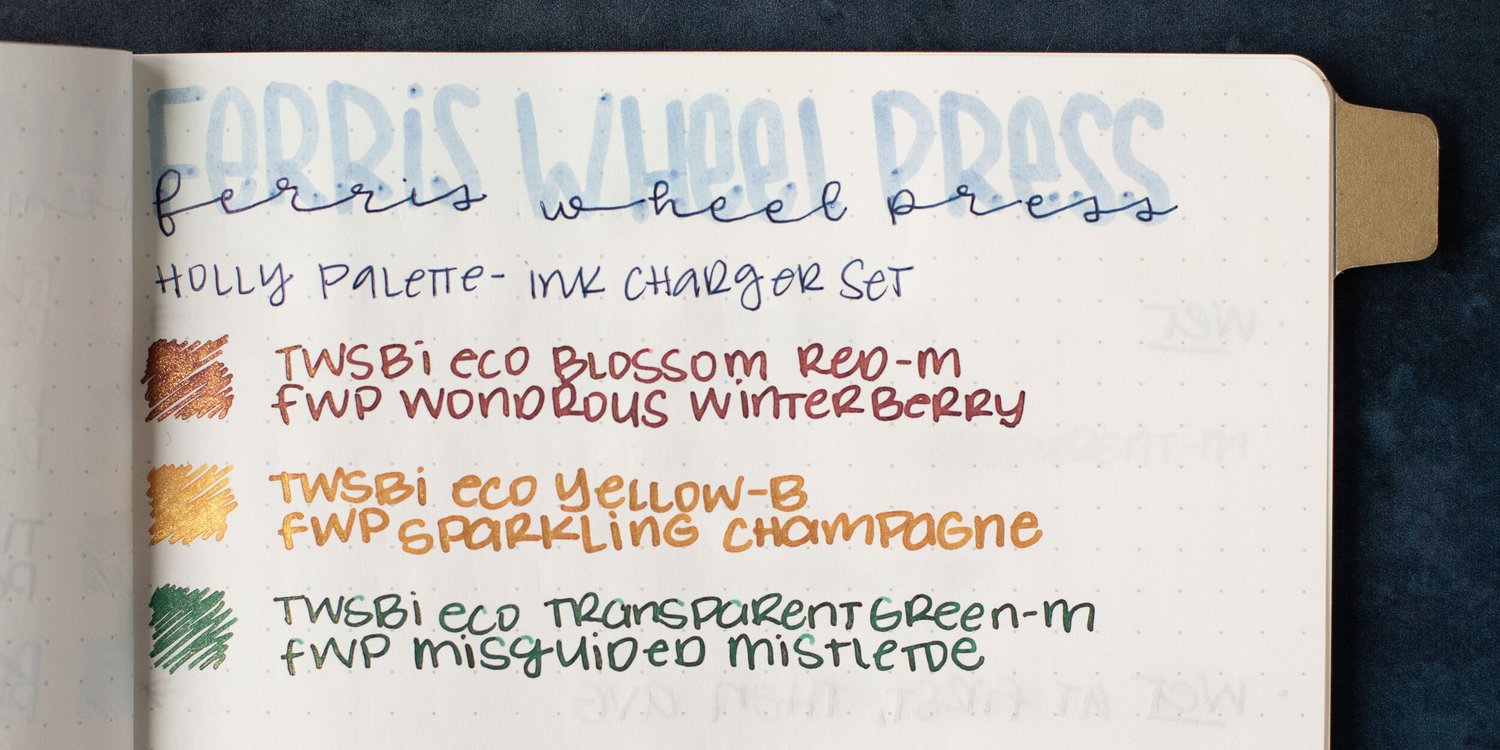 FeRRiS WHeeL PReSS
ferris wheel press
HOLLY PaLeTTe- inK CHaRgeR SeT
TWSBi eco BLOSSOM ReD-M
fWP WOnDROUS WinTeRBeRRY
TWSBi eco YeLLOW-B
fWP SPaRKLinG CHamPaGne
TWSBi eco TRanSPaRenT GReen-m
fWP misguiDeD misTLeTOe